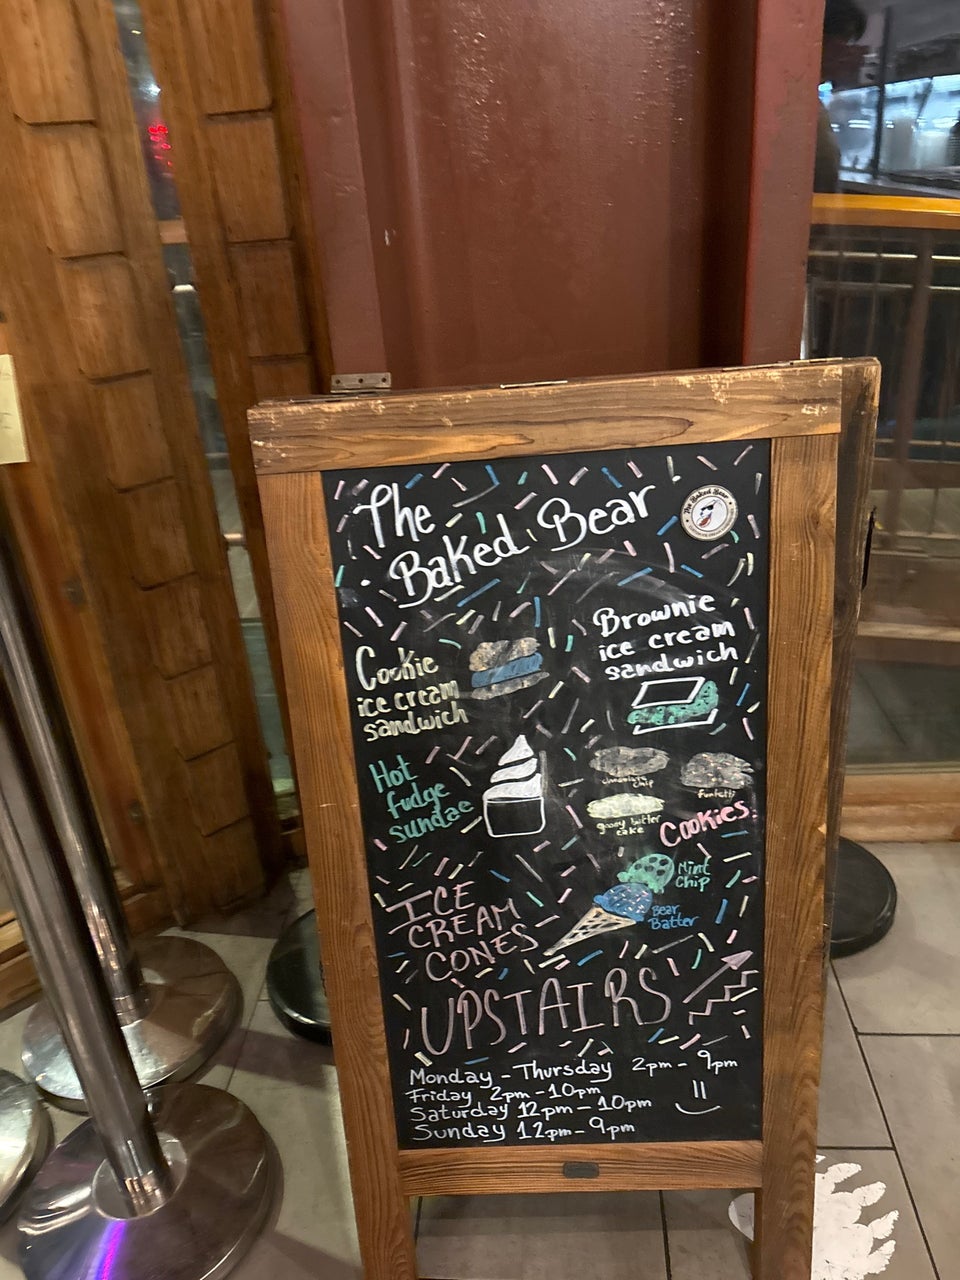 The
Baked Bear
The Baked Bear
Cookie
ice cream
sandwich
Brownie
ice cream
sandwich
Hot
fudge
sundae
chocolate
chip
funfetti
gooey butter
cake
Cookies
ICE
CREAM
CONES
Mint
Chip
Bear
Batter
UPSTAIRS
Monday - Thursday 2pm - 9pm
Friday 2pm - 10pm
Saturday 12pm - 10pm
Sunday 12pm - 9pm